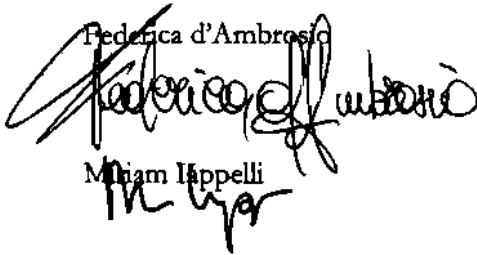 Federica d'Ambrosio
Federica d'Ambrosio
Miriam Iappelli